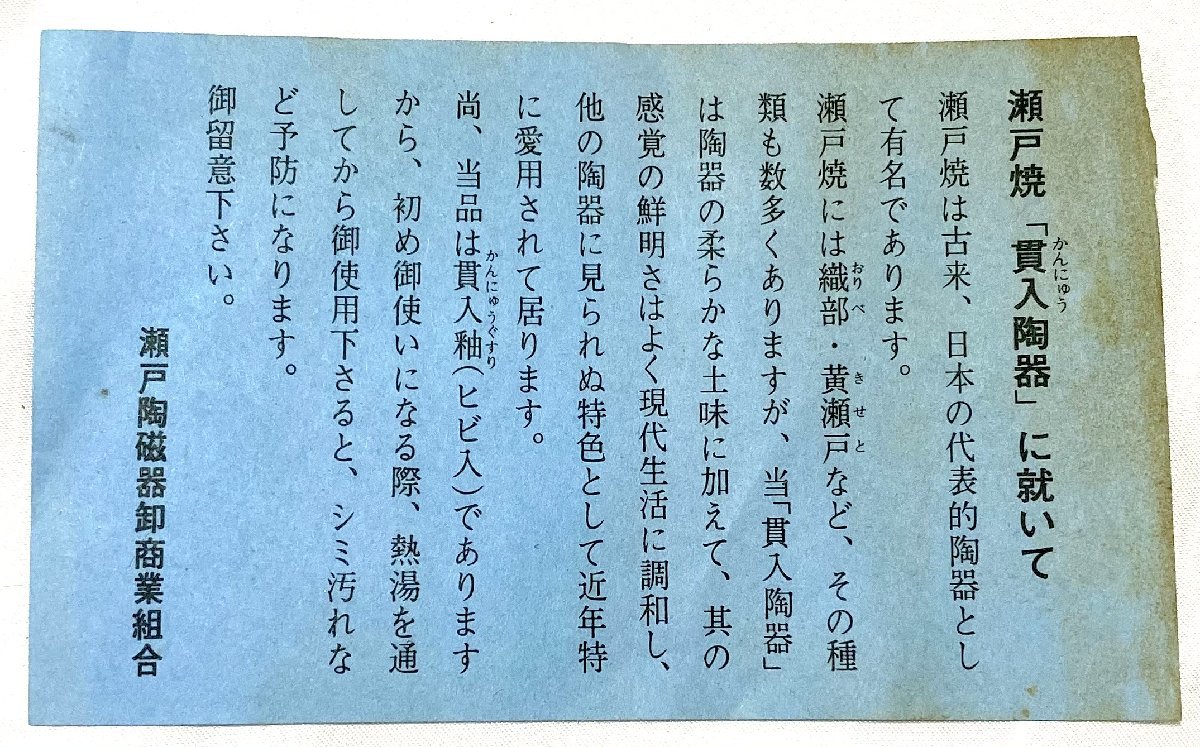 瀬戸焼「貫入陶器」に就いて
かんにゅう
瀬戸焼は古来、日本の代表的陶器とし
て有名であります。
瀬戸焼には織部・黄瀬戸など、その種
おりべ きせと
類も数多くありますが、当「貫入陶器」
は陶器の柔らかな土味に加えて、其の
感覚の鮮明さはよく現代生活に調和し、
他の陶器に見られぬ特色として近年特
に愛用されて居ります。
尚、当品は貫入釉(ヒビ入)であります
かんにゅうぐすり
から、初め御使いになる際、熱湯を通
してから御使用下さると、シミ汚れな
ど予防になります。
御留意下さい。
瀬戸陶磁器卸商業組合